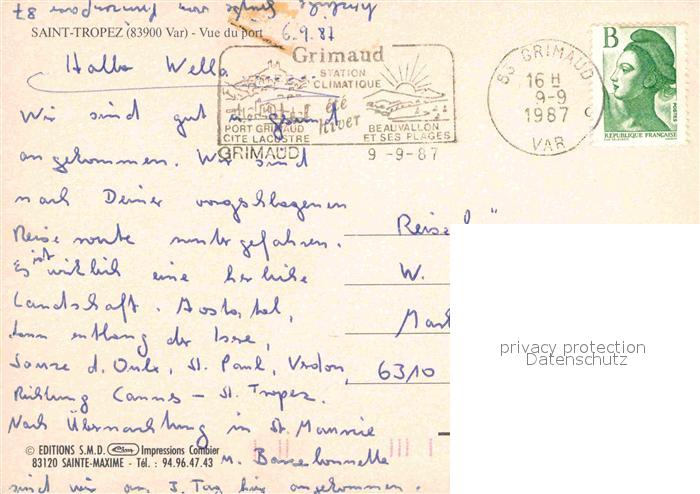 SAINT-TROPEZ (83900 Var) - Vue du port
6.9.87
Hallo Wella
Wir sind gut u. gesund
angekommen. Wir sind
nach Deiner vorgeschlagenen
Reiseroute runtergefahren.
Es ist wirklich eine herrliche
Landschaft. Aostatal,
dann entlang der Isere,
d. Oulx, St. Paul, Verdon,
Richtung Cannes - St. Tropez.
Nach Übernachtung in St. Maurice
u. Barcelonnette
sind wir am 3. Tag hier angekommen.
Grimaud
STATION
CLIMATIQUE
été
hiver
PORT GRIMAUD
CITE LACUSTRE
BEAUVALLON
ET SES PLAGES
GRIMAUD
9-9-87
83 GRIMAUD
16 H
9-9
1987
VAR
B
POSTES
REPUBLIQUE FRANÇAISE
W.
6310
privacy protection
Datenschutz
© EDITIONS S.M.D. Cim Impressions Combier
83120 SAINTE-MAXIME - Tél. : 94.96.47.43